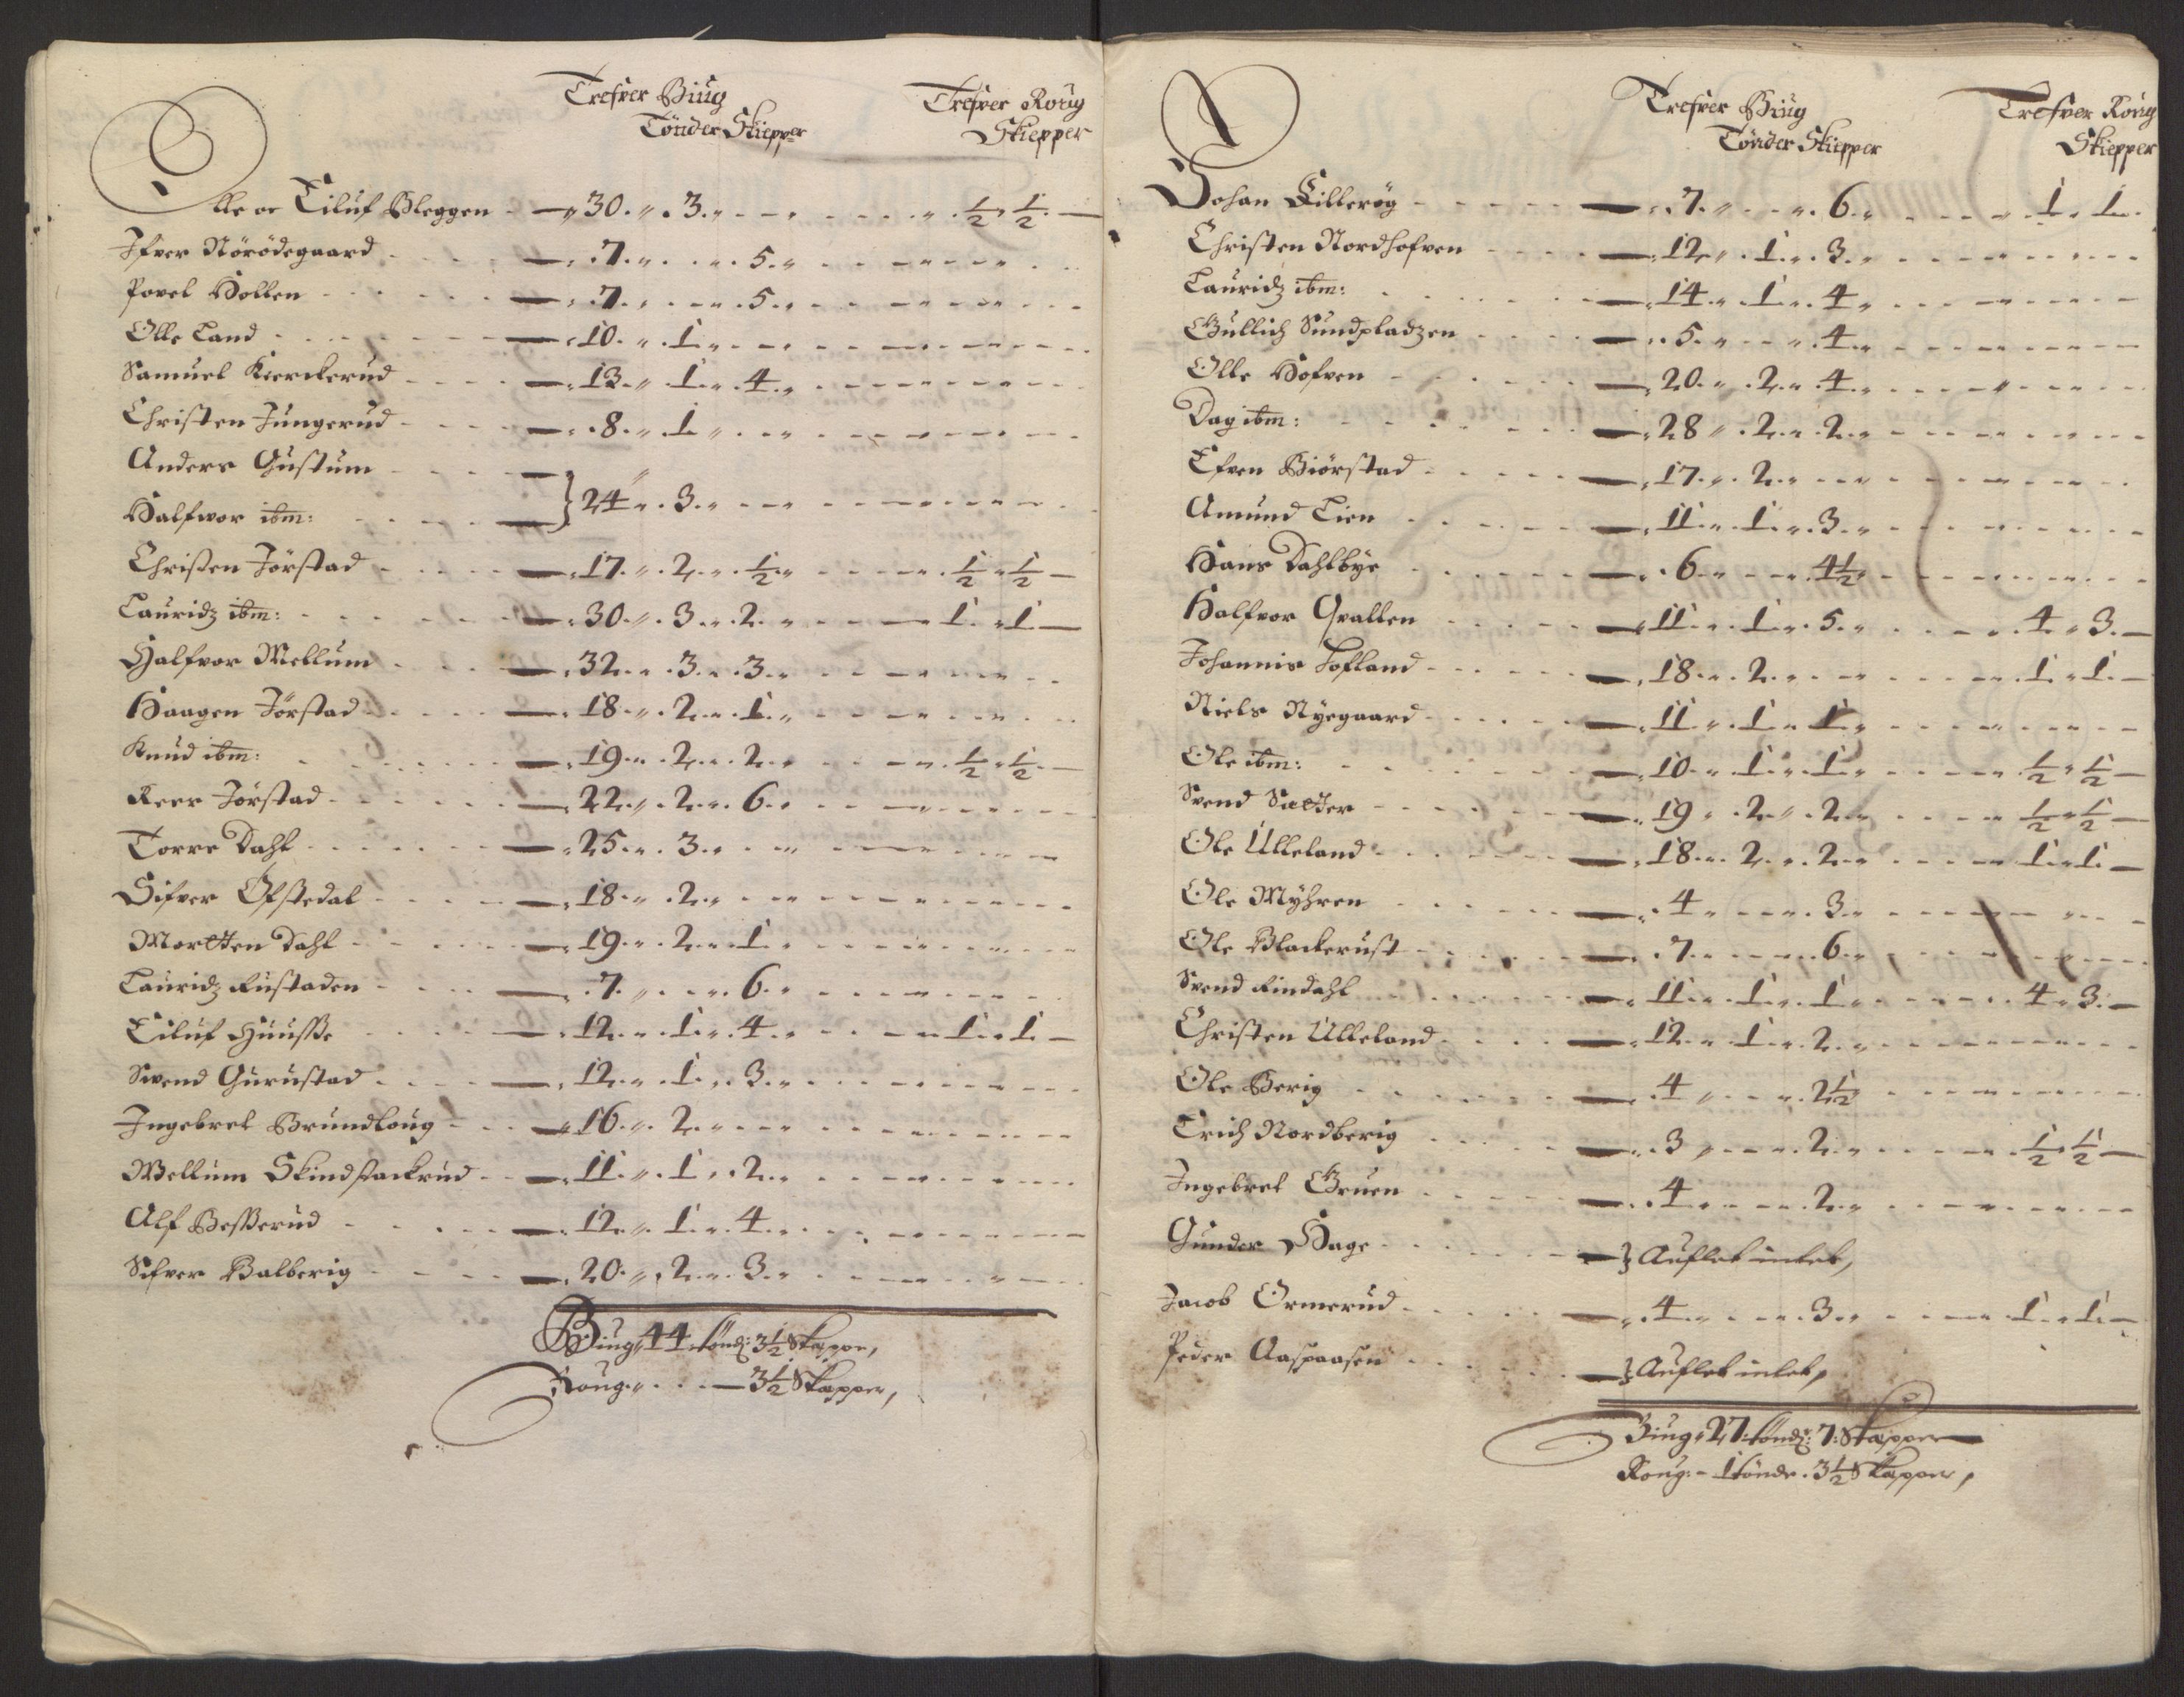 Trefver Biug Trefver Roug
Tönder Skiepper Skiepper
Olle oc Eiluf Bleggen 30. 3. ½ ½
Ifver Nörödegaard 7. 5.
Povel Hollen 7. 5.
Olle Land 10. 1.
Samuel Kierckerud 13. 1. 4.
Christen Jungerud 8. 1
Anders Gustum
Halfwor ibm: } 24 3.
Christen Jörstad 17. 2. ½ ½ ½
Lauridz ibm: 30. 3. 2. 1. 1.
Halfvor Mellum 32. 3. 3.
Haagen Jörstad 18. 2. 1.
Knud ibm: 19. 2. 2. ½ ½
Peer Jörstad 22. 2. 6.
Torre Dahl 25. 3.
Sifver Ofstedal 18. 2.
Mortten Dahl 19. 2. 1.
Lauridz Rustaden 7. 6.
Eiluf Huusse 12. 1. 4. 1. 1.
Svend Gurustad 12. 1. 3.
Ingebret Brundloug 16. 2.
Mellum Skindstackrud 11. 1. 2.
Alf Besserud 12. 1. 4.
Sifver Balberig 20. 2. 3.
Biug 44 tönd: 3½ Skæpper,
Roug 3½ Skæpper,
Trefver Biug Trefver Roug
Tönder Skiepper Skiepper
Johan Lillerøg 7. 6. 1. 1.
Christen Nordhofven 12. 1. 3.
Lauridz ibm: 14. 1. 4
Gullich Sundpladzen 5. 4.
Olle Hofven 20. 2. 4.
Dag ibm: 28 2. 2.
Efven Biörstad 17. 2.
Amund Lien 11. 1. 3.
Hans Dahlbye 6. 4½
Halfvor Qvallen 11. 1. 5. 4. 3.
Johannis Lofland 18. 2. 1. 1.
Niels Nyegaard 11. 1. 1.
Ole ibm: 10. 1. 1. ½ ½
Svend Sætter 19 2. 2. ½ ½
Ole Ulleland 18. 2. 2. 1. 1.
Ole Myhren 4 3.
Ole Blackerust 7. 6.
Svend Rindahl 11. 1. 1. 4. 3.
Christen Ulleland 12. 1. 2.
Ole Berig 4 2½
Erich Nordberig 3 2. ½ ½
Ingebret Gruen 4 2.
Gunder Hage } Auflet intet,
Jacob Ormerud 4. 3. 1. 1.
Peder Aaspaasen } Auflet intet,
Biug 27 tönd: 7. Skæpper
Roug: 1 tönde. 3½ Skæpper,